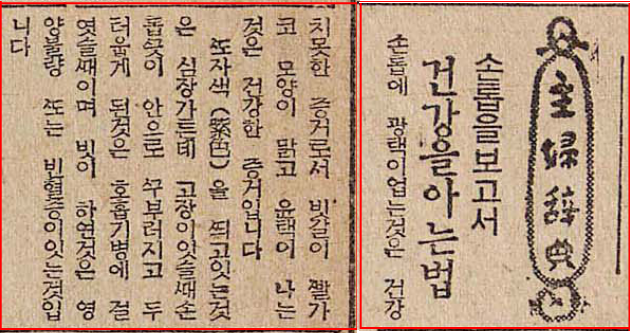 主婦辞典
손톱을보고서
건강을아는법
손톱에 광택이업는것은 건강
치못한 증거로서 빗갈이 빨가
코 모양이 맑고 윤택이 나는
것은 건강한 증거입니다
ᄯᅩ자색(紫色)을 ᄯᅴ고잇는것
은 심장가튼데 고장이잇슬ᄯᅢ손
톱끗이 안으로 ᄭᅮ부러지고 두
터웁게 된것은 호흡기병에 걸
엿슬ᄯᅢ이며 빗이 하연것은 영
양불량 ᄯᅩ는 빈혈증이잇는것입
니다